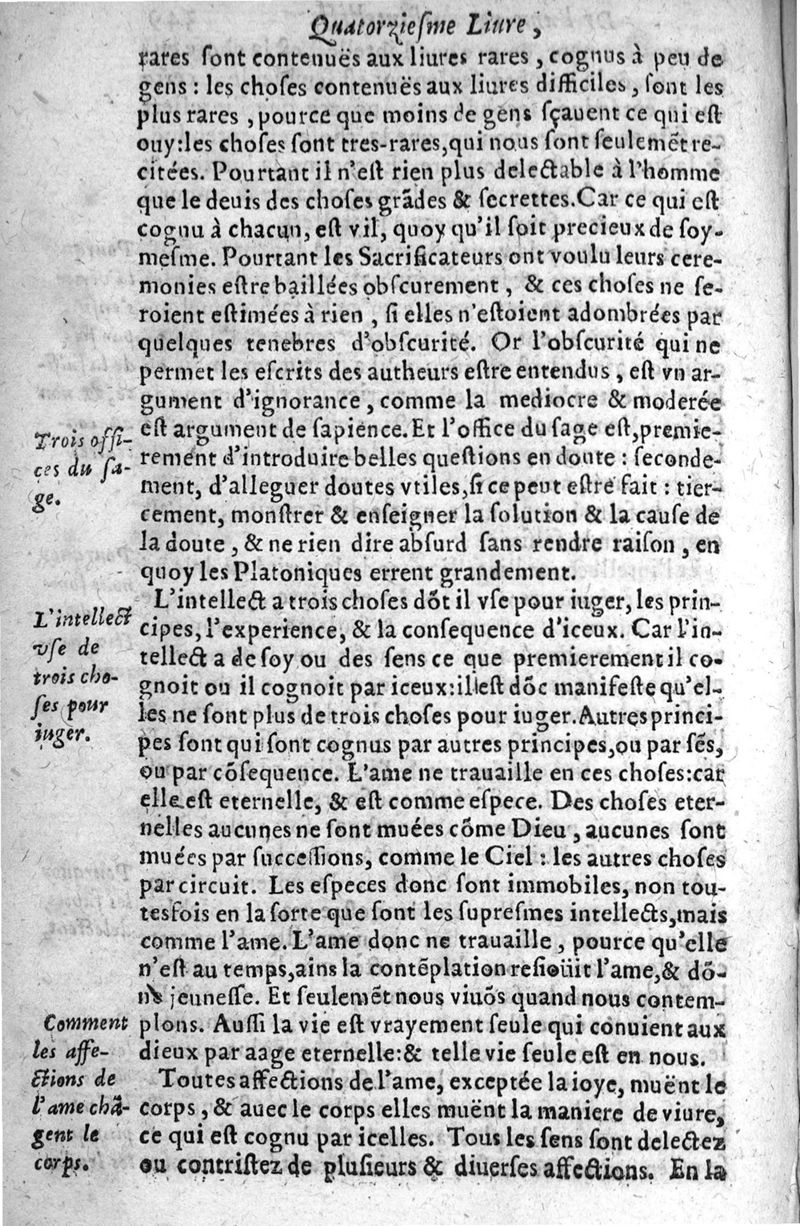 Quatorziesme Liure,
rares sont contenuës aux liures rares, cognus à peu de
gens : les choses contenuës aux liures difficiles, sont les
plus rares, pource que moins de gens sçauent ce qui est
ouy: les choses sont tres-rares, qui nous sont seulemẽt re-
citées. Pourtant il n'est rien plus delectable à l'homme
que le deuis des choses grãdes & secrettes. Car ce qui est
cognu à chacun, est vil, quoy qu'il soit precieux de soy-
mesme. Pourtant les Sacrificateurs ont voulu leurs cere-
monies estre baillées obscurement, & ces choses ne se-
roient estimées à rien, si elles n'estoient adombrées par
quelques tenebres d'obscurité. Or l'obscurité qui ne
permet les escrits des autheurs estre entendus, est vn ar-
gument d'ignorance, comme la mediocre & moderée
est argument de sapience. Et l'office du sage est, premie-
rement d'introduire belles questions en doute : seconde-
ment, d'alleguer doutes vtiles, si ce peut estre fait : tier-
cement, monstrer & enseigner la solution & la cause de
la doute, & ne rien dire absurd sans rendre raison, en
quoy les Platoniques errent grandement.
Trois offi-
ces du sa-
ge.
L'intellect a trois choses dõt il vse pour iuger, les prin-
cipes, l'experience, & la consequence d'iceux. Car l'in-
tellect a de soy ou des sens ce que premierement il co-
gnoit ou il cognoit par iceux: il est dõc manifeste qu'el-
les ne sont plus de trois choses pour iuger. Autres princi-
pes sont qui sont cognus par autres principes, ou par sẽs,
ou par cõsequence. L'ame ne trauaille en ces choses: car
elle est eternelle, & est comme espece. Des choses eter-
nelles aucunes ne sont muées cõme Dieu, aucunes sont
muées par successions, comme le Ciel : les autres choses
par circuit. Les especes donc sont immobiles, non tou-
tesfois en la sorte que sont les supresmes intellects, mais
comme l'ame. L'ame donc ne trauaille, pource qu'elle
n'est au temps, ains la contẽplation resioüit l'ame, & dõ-
ne jeunesse. Et seulemẽt nous viuõs quand nous contem-
plons. Aussi la vie est vrayement seule qui conuient aux
dieux par aage eternelle: & telle vie seule est en nous.
L'intellect
vse de
trois cho-
ses pour
iuger.
Toutes affections de l'ame, exceptée la ioye, muënt le
corps, & auec le corps elles muënt la maniere de viure,
ce qui est cognu par icelles. Tous les sens sont delectez
ou contristez de plusieurs & diuerses affections. En la
Comment
les affe-
ctions de
l'ame chã-
gent le
corps.